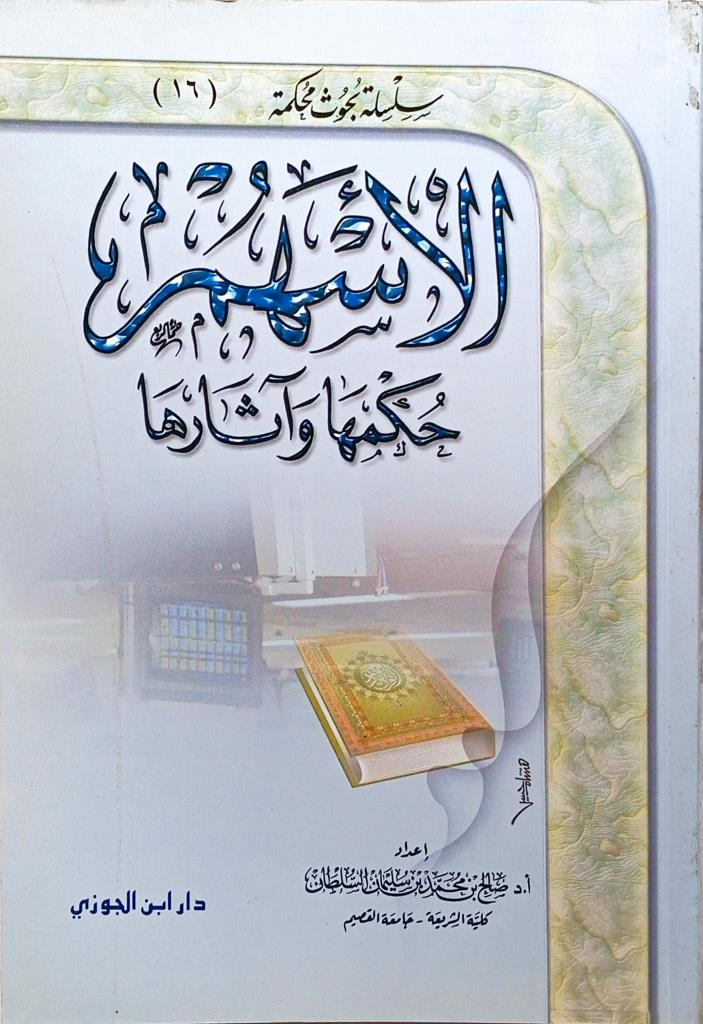 سلسلة بحوث محكمة (١٦)
الأسهم
حكمها وآثارها
إعداد
أ.د صالح بن محمد بن سليمان السلطان
كلية الشريعة - جامعة القصيم
دار ابن الجوزي